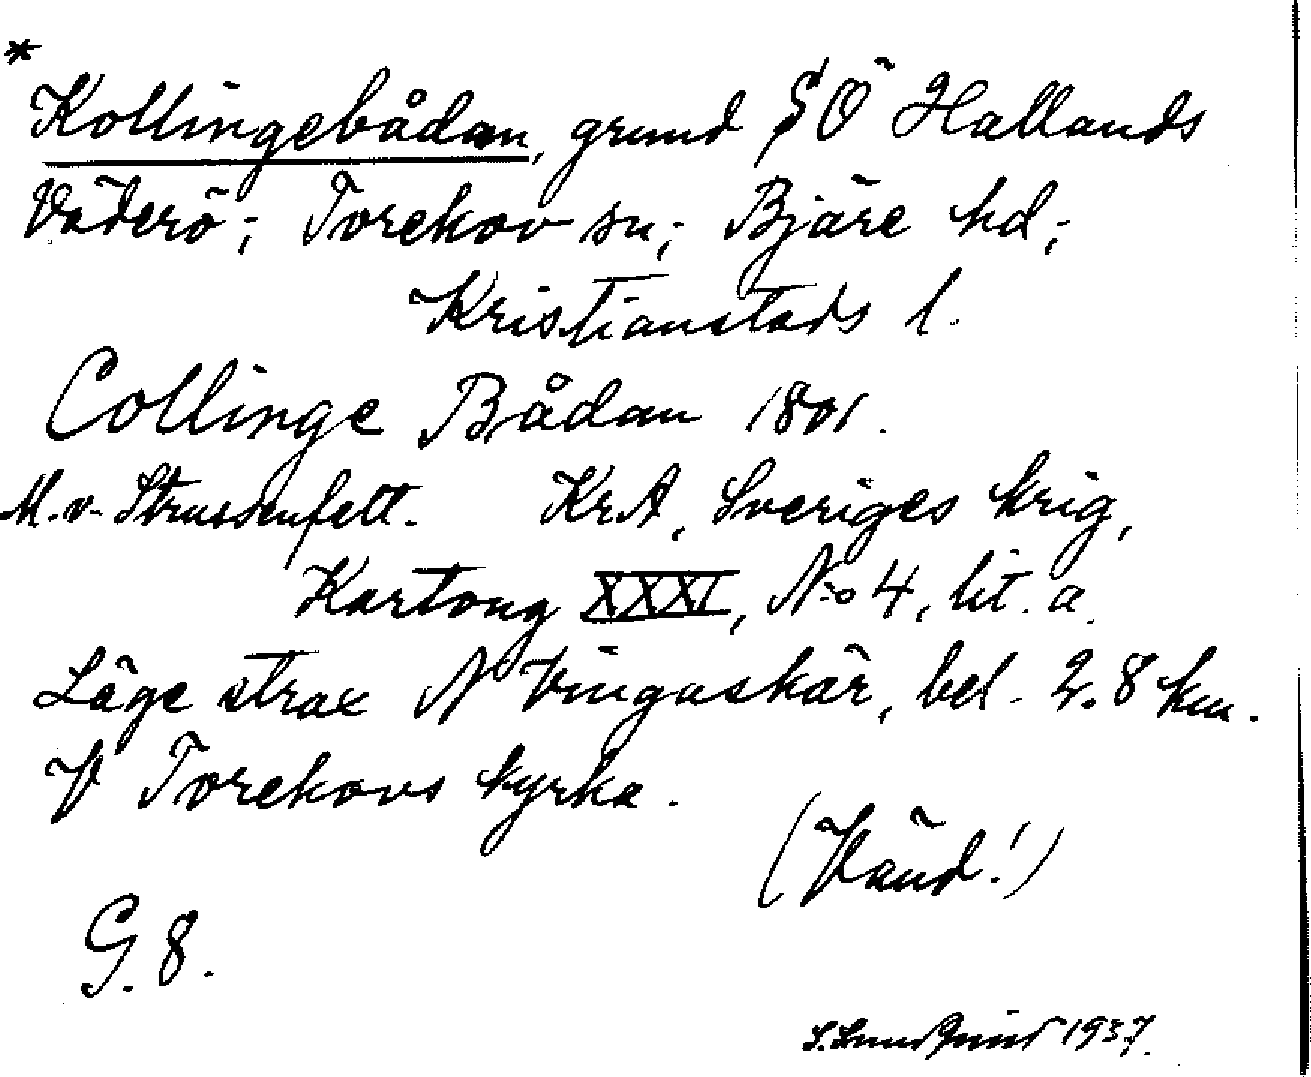 *
Kollingebådan, grund SÖ Hallands
Väderö; Torekov sn; Bjäre hd;
Kristianstads l.
Collinge Bådan 1801.
M. v. Strussenfelt. KrA, Sveriges krig,
Kartong XXXI, No 4, lit. a.
Läge strax N Vingaskär, bel. 2.8 km.
V Torekovs kyrka.
(Vänd!)
G. 8.
S. Lundquist 1937.